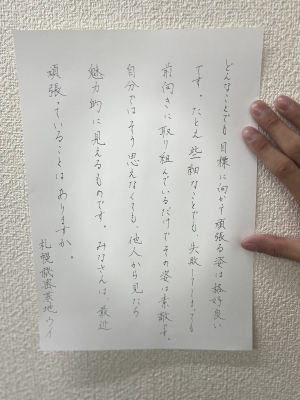 どんなことでも目標に向かって頑張る姿は格好良い
です。たとえ些細なことでも、失敗してしまっても
前向きに取り組んでいるだけでその姿は素敵です。
自分ではそう思えなくても、他人から見たら
魅力的に見えるものです。みなさんは、最近
頑張っていることはありますか。
札幌秘密基地